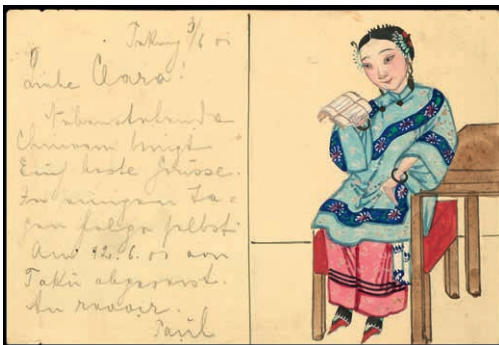 Peking 3/6 01
Liebe Clara!
Nebenstehende
Chinesin bringt
Euch beste Grüsse.
In einigen Ta=
gen folge selbst.
12. 6. 01 von
Taku abgereist.
Au revoir.
Paul